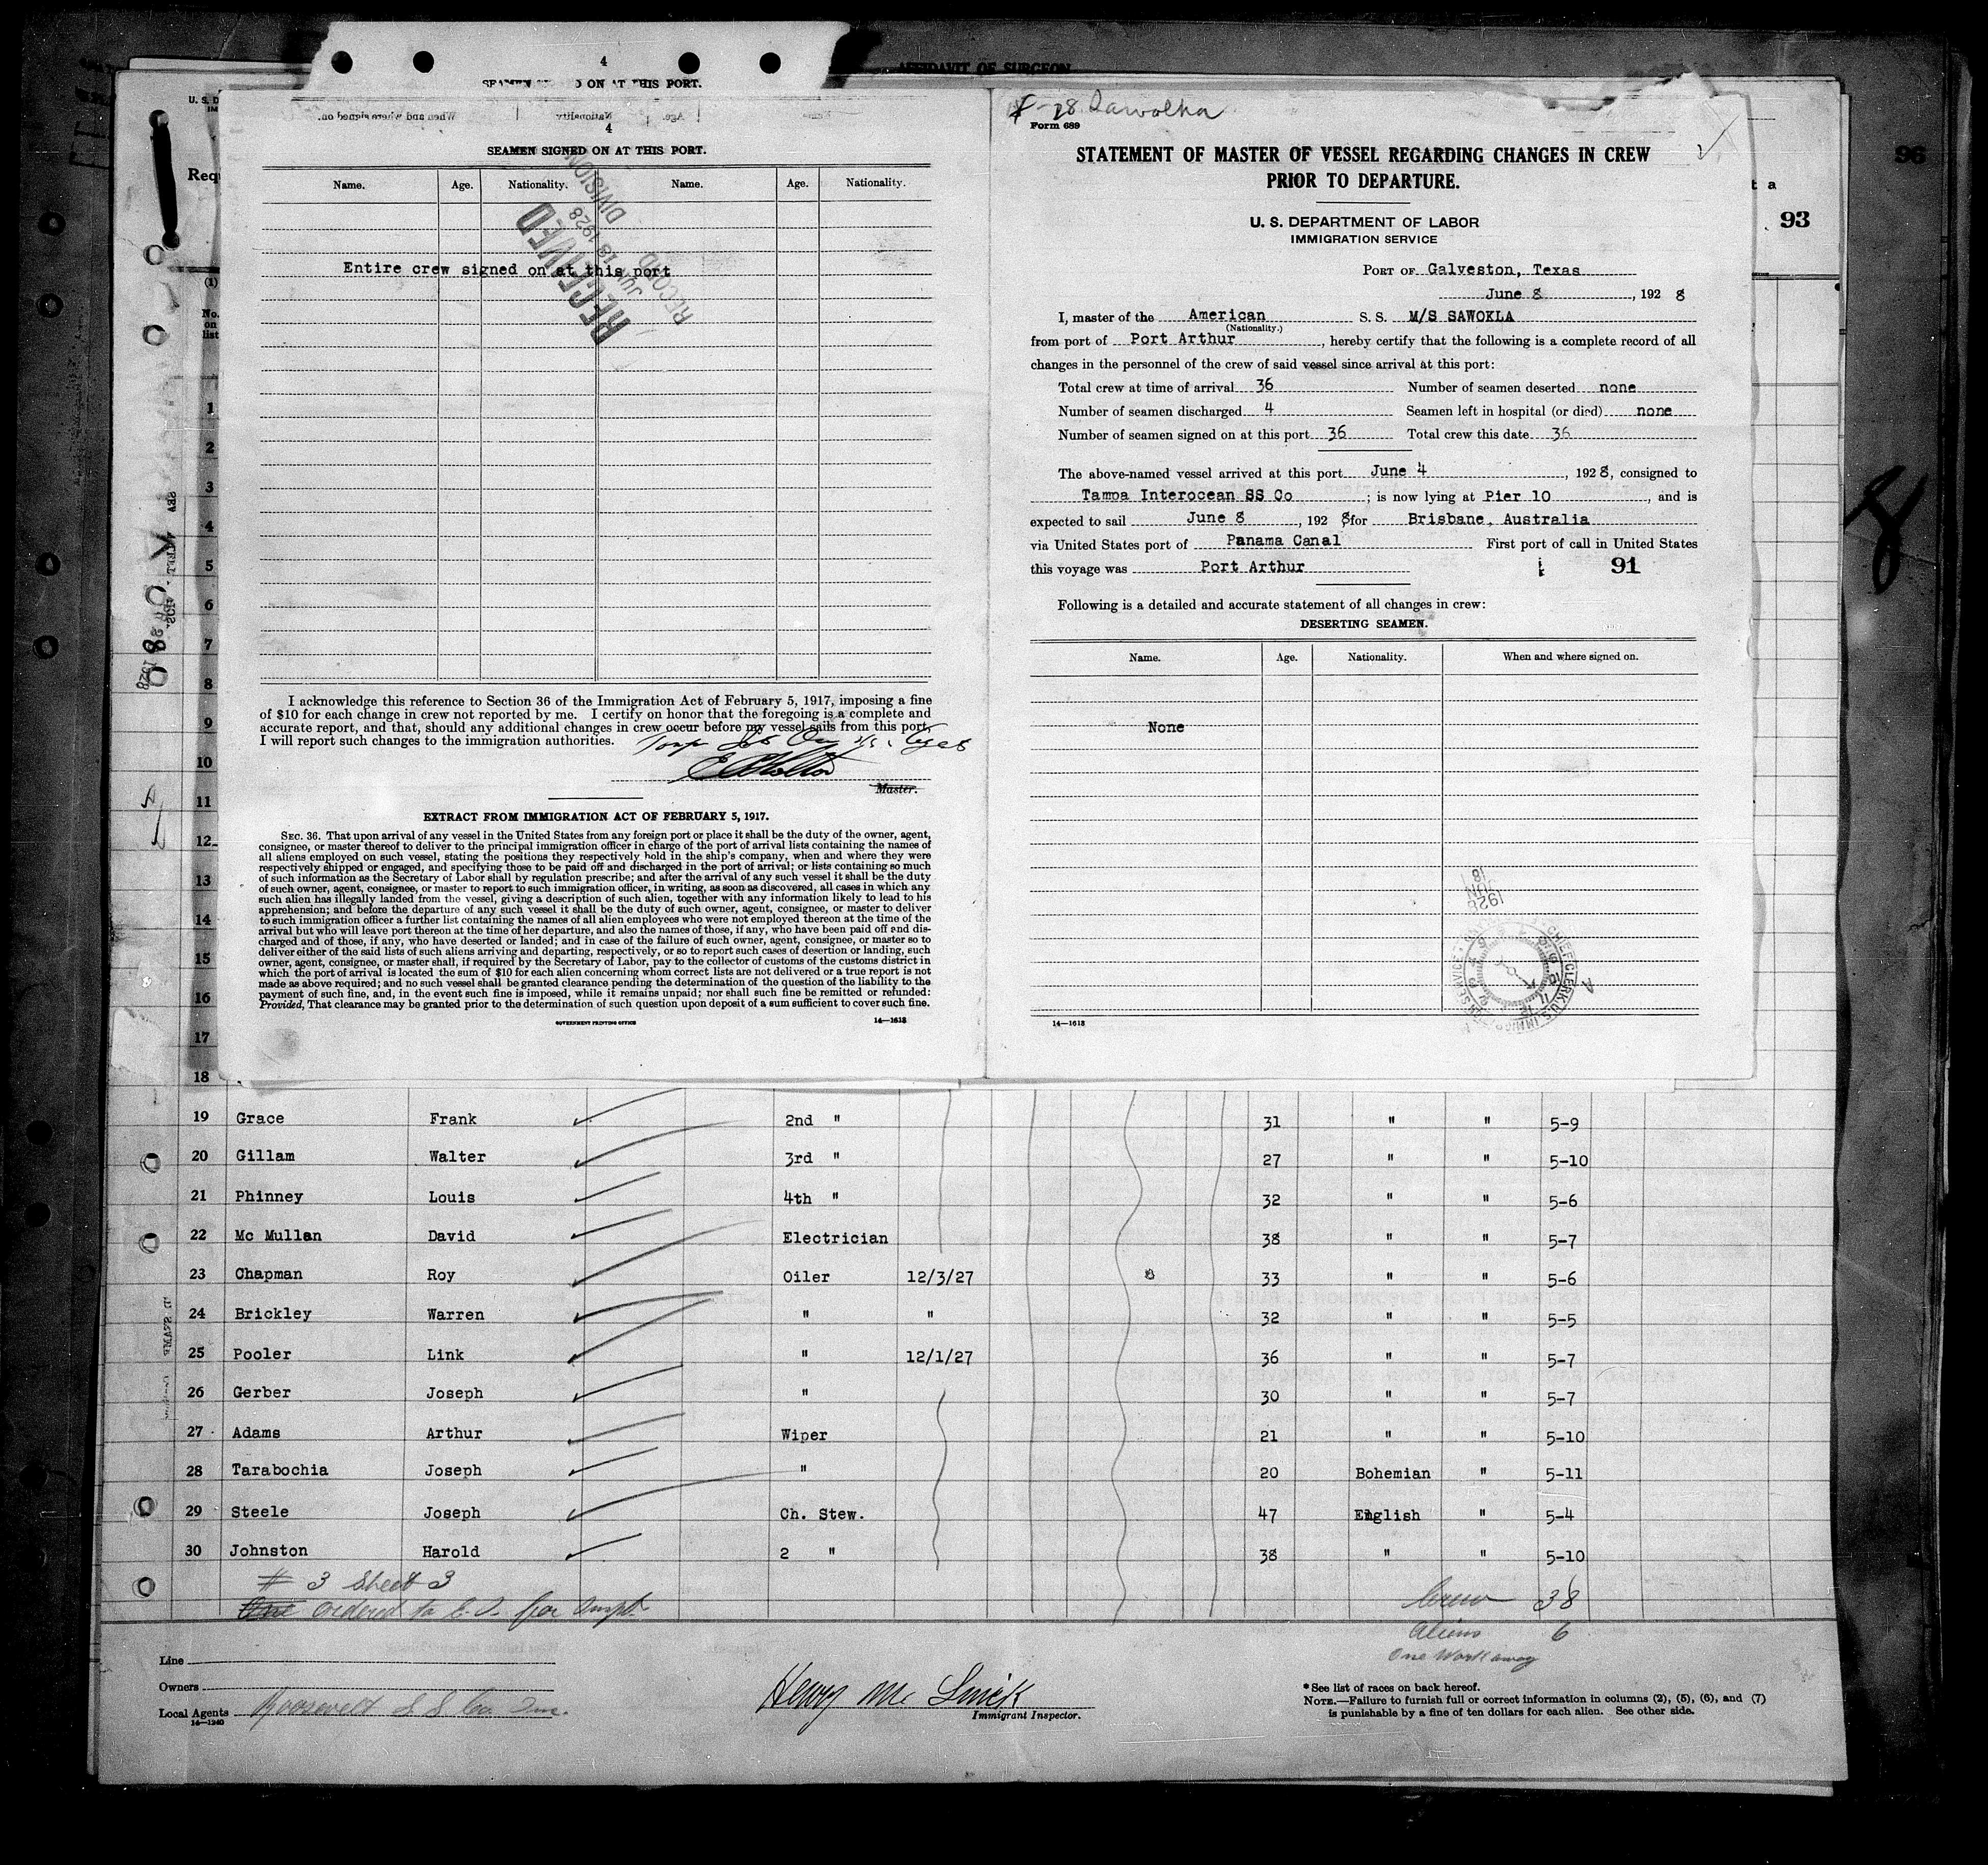 AFFIDAVIT OF SURGEON
96
93
4
ON AT THIS PORT.
U. S. D
4
SEAMEN SIGNED ON AT THIS PORT.
Name. Age. Nationality. Name. Age. Nationality.
RECEIVED
JUN 18 1928
RECORD DIVISION
Entire crew signed on at this port
I acknowledge this reference to Section 36 of the Immigration Act of February 5, 1917, imposing a fine
of $10 for each change in crew not reported by me. I certify on honor that the foregoing is a complete and
accurate report, and that, should any additional changes in crew occur before my vessel sails from this port,
I will report such changes to the immigration authorities.
Master.
EXTRACT FROM IMMIGRATION ACT OF FEBRUARY 5, 1917.
SEC. 36. That upon arrival of any vessel in the United States from any foreign port or place it shall be the duty of the owner, agent,
consignee, or master thereof to deliver to the principal immigration officer in charge of the port of arrival lists containing the names of
all aliens employed on such vessel, stating the positions they respectively hold in the ship's company, when and where they were
respectively shipped or engaged, and specifying those to be paid off and discharged in the port of arrival; or lists containing so much
of such information as the Secretary of Labor shall by regulation prescribe; and after the arrival of any such vessel it shall be the duty
of such owner, agent, consignee, or master to report to such immigration officer, in writing, as soon as discovered, all cases in which any
such alien has illegally landed from the vessel, giving a description of such alien, together with any information likely to lead to his
apprehension; and before the departure of any such vessel it shall be the duty of such owner, agent, consignee, or master to deliver
to such immigration officer a further list containing the names of all alien employees who were not employed thereon at the time of the
arrival but who will leave port thereon at the time of her departure, and also the names of those, if any, who have been paid off and dis-
charged and of those, if any, who have deserted or landed; and in case of the failure of such owner, agent, consignee, or master so to
deliver either of the said lists of such aliens arriving and departing, respectively, or so to report such cases of desertion or landing, such
owner, agent, consignee, or master shall, if required by the Secretary of Labor, pay to the collector of customs of the customs district in
which the port of arrival is located the sum of $10 for each alien concerning whom correct lists are not delivered or a true report is not
made as above required; and no such vessel shall be granted clearance pending the determination of the question of the liability to the
payment of such fine, and, in the event such fine is imposed, while it remains unpaid; nor shall such fine be remitted or refunded:
Provided, That clearance may be granted prior to the determination of such question upon deposit of a sum sufficient to cover such fine.
GOVERNMENT PRINTING OFFICE 14—1618
Sawokla
Form 689
STATEMENT OF MASTER OF VESSEL REGARDING CHANGES IN CREW
PRIOR TO DEPARTURE.
U. S. DEPARTMENT OF LABOR
IMMIGRATION SERVICE
PORT OF Galveston, Texas
June 8, 1928
I, master of the American S. S. M/S SAWOKLA
(Nationality.)
from port of Port Arthur, hereby certify that the following is a complete record of all
changes in the personnel of the crew of said vessel since arrival at this port:
Total crew at time of arrival 36 Number of seamen deserted none
Number of seamen discharged 4 Seamen left in hospital (or died) none
Number of seamen signed on at this port 36 Total crew this date 36
The above-named vessel arrived at this port June 4, 1928, consigned to
Tampa Interocean SS Co; is now lying at Pier 10, and is
expected to sail June 8, 1928 for Brisbane, Australia
via United States port of Panama Canal First port of call in United States
this voyage was Port Arthur 91
Following is a detailed and accurate statement of all changes in crew:
DESERTING SEAMEN.
Name. Age. Nationality. When and where signed on.
None
14—1618
(1)
No. on list
1
2
3
4
5
6
7
8
9
10
11
12
13
14
15
16
17
18
19 Grace Frank 2nd " 31 " " 5-9
20 Gillam Walter 3rd " 27 " " 5-10
21 Phinney Louis 4th " 32 " " 5-6
22 Mc Mullan David Electrician 38 " " 5-7
23 Chapman Roy Oiler 12/3/27 33 " " 5-6
24 Brickley Warren " " 32 " " 5-5
25 Pooler Link " 12/1/27 36 " " 5-7
26 Gerber Joseph " 30 " " 5-7
27 Adams Arthur Wiper 21 " " 5-10
28 Tarabochia Joseph " 20 Bohemian " 5-11
29 Steele Joseph Ch. Stew. 47 English " 5-4
30 Johnston Harold 2 " 38 " " 5-10
# 3 Sheet 3
One ordered to E. I. for Inspt. Crew 38
Aliens 6
One Workaway
Line
Owners
Local Agents Roosevelt S S Co. Inc.
14—1240
Henry Mc
Immigrant Inspector.
*See list of races on back hereof.
NOTE.—Failure to furnish full or correct information in columns (2), (5), (6), and (7)
is punishable by a fine of ten dollars for each alien. See other side.